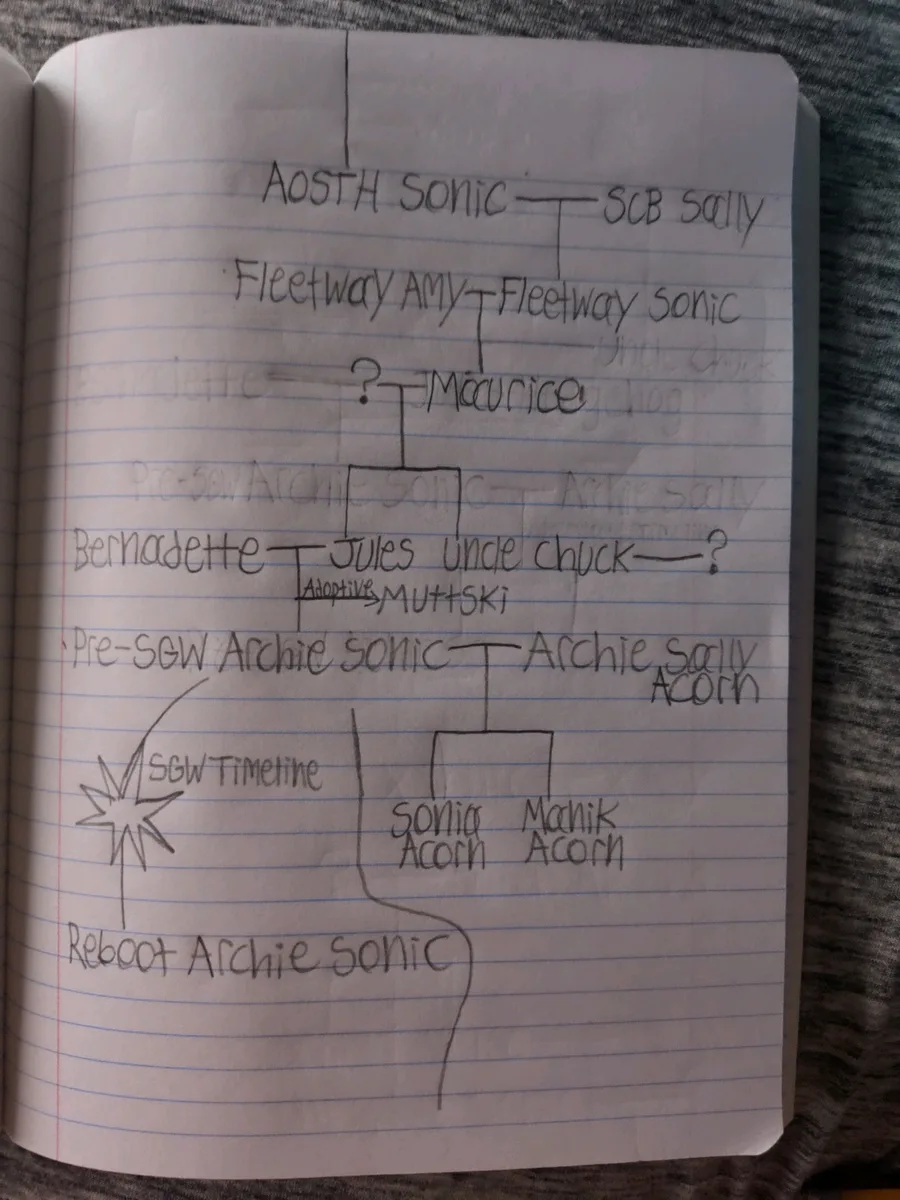 AOSTH Sonic SCB Sally
Fleetway Amy Fleetway Sonic
? Maurice
Bernadette Jules Uncle Chuck ?
Adoptive Muttski
Pre-SGW Archie Sonic Archie Sally
Acorn
SGW Timeline
Sonia Manik
Acorn Acorn
Reboot Archie Sonic